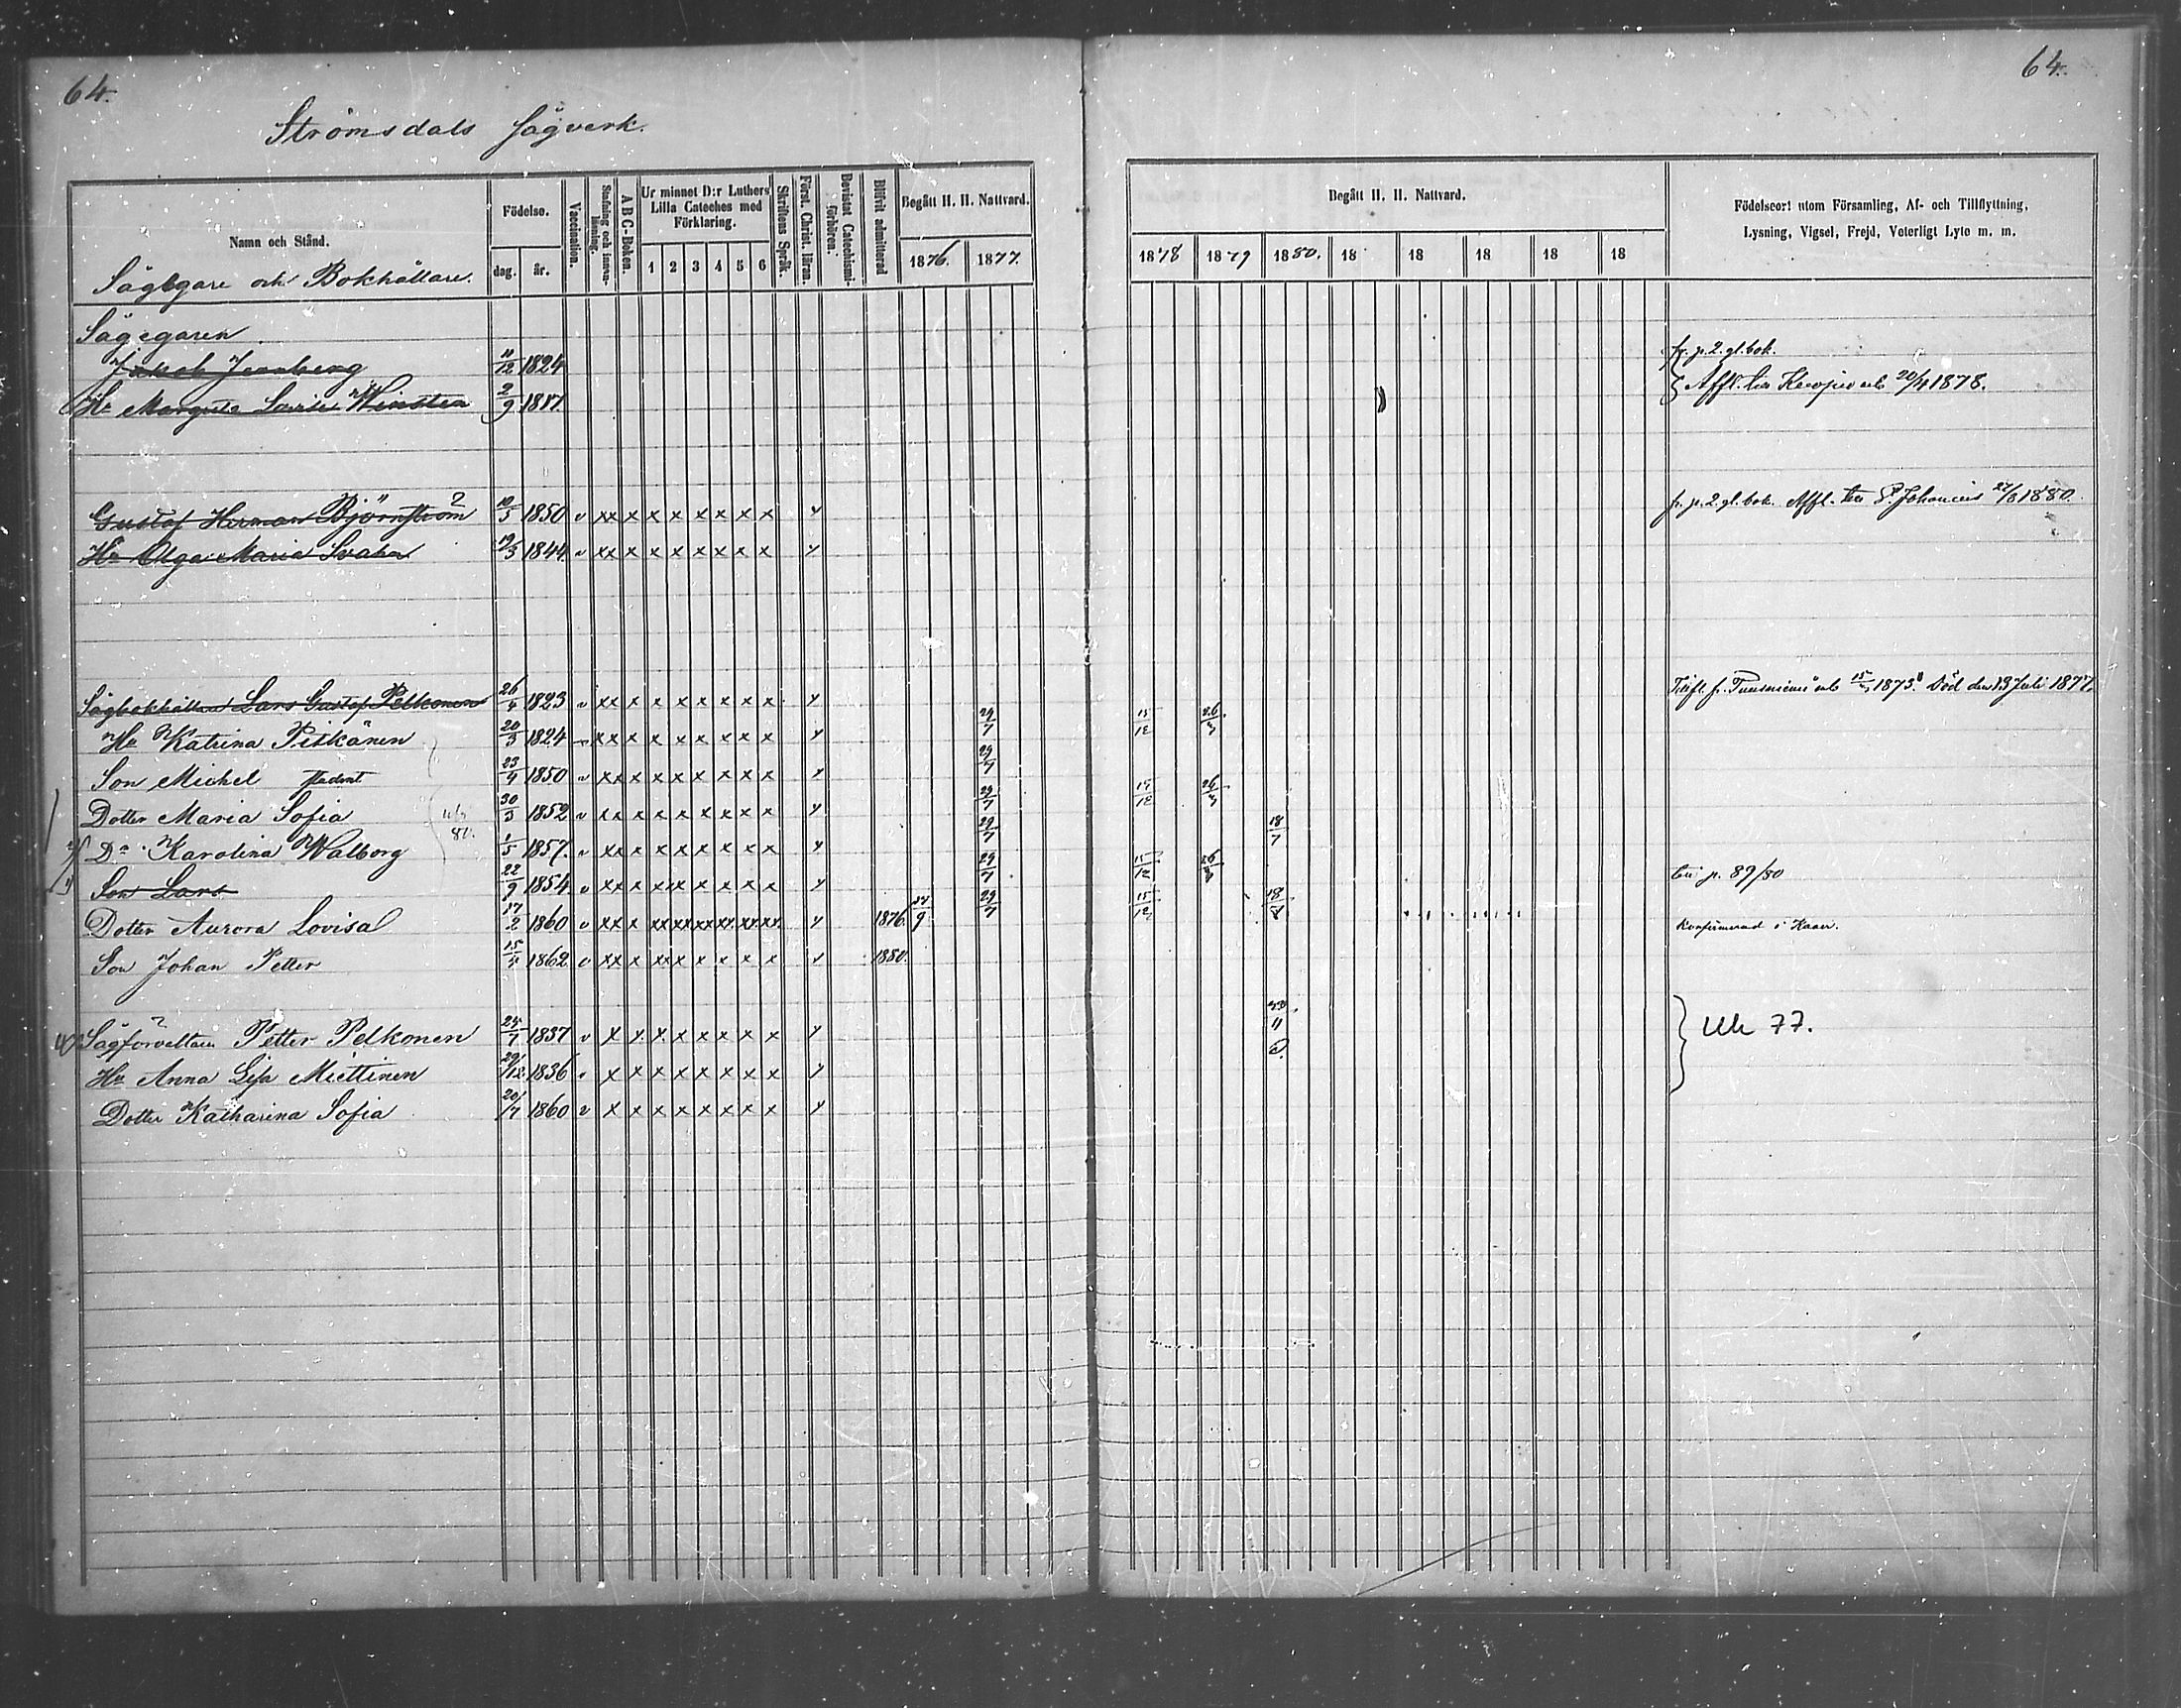 64.
64.
Strömsdals Sågverk.
Namn och Stånd.
Födelse.
dag. år.
Vaccination.
Stafning och innan-läsning.
A B C-Boken.
Ur minnet D:r Luthers Lilla Cateches med Förklaring.
1 2 3 4 5 6
Skriftens Språk.
Först. Christ. läran.
Bevistat Catechismi-förhören.
Blifvit admitterad
Begått H. H. Nattvard.
1876. 1877.
Begått H. H. Nattvard.
1878 1879 1880. 18 18 18 18 18
Födelseort utom Församling, Af- och Tillflyttning,
Lysning, Vigsel, Frejd, Veterligt Lyte m. m.
Sågegare och Bokhållare.
Sågegaren
Jakob Jernberg 11/12 1824 fr. p. 2. gl. bok.
Hu Margreta Lovisa Winsten 2/9 1817 Affl. till Kuopio 20/4 1878.
Gustaf Herman Björnström 10/5 1850 v xx x x x x x x x fr. p. 2. gl. bok. Affl. till St Johannis 27/8 1880.
Hu Olga Maria Svahn 19/3 1844 v xx x x x x x x x
Sågbokhållare Lars Gustaf Pelkonen 26/4 1823 v xx x x x x x x x 1873. Död den 13 Juli 1877.
Hu Katrina Pitkänen 20/3 1824 xx x x x x x x x 29/7 15/12 26/3
Son Michel student 23/4 1850 v xx x x x x x x x 29/7
Dotter Maria Sofia 30/3 1852 v xx x x x x x x x 29/7 15/12 26/3
Da Karolina Walborg 80. 1/5 1857. v xx x x x x x x x 29/7 18/7
Son Lars 22/9 1854 v xx x xx x x x x x 29/7 15/12 26/3 till p. 89/80
Dotter Aurora Lovisa 17/2 1860 v xx x xx xx xx xx xx xx 1876. 24/9 29/7 15/12 18/7 Konfirmerad i Kaavi.
Son Johan Petter 15/4 1862 v xx x xx x x x x x 1880.
Sågförvaltare Petter Pelkonen 25/7 1837 v x x x x x x x x Utk 77.
Hu Anna Lisa Miettinen 29/12 1836 x x x x x x x x
Dotter Katharina Sofia 20/7 1860 v x x x x x x x x